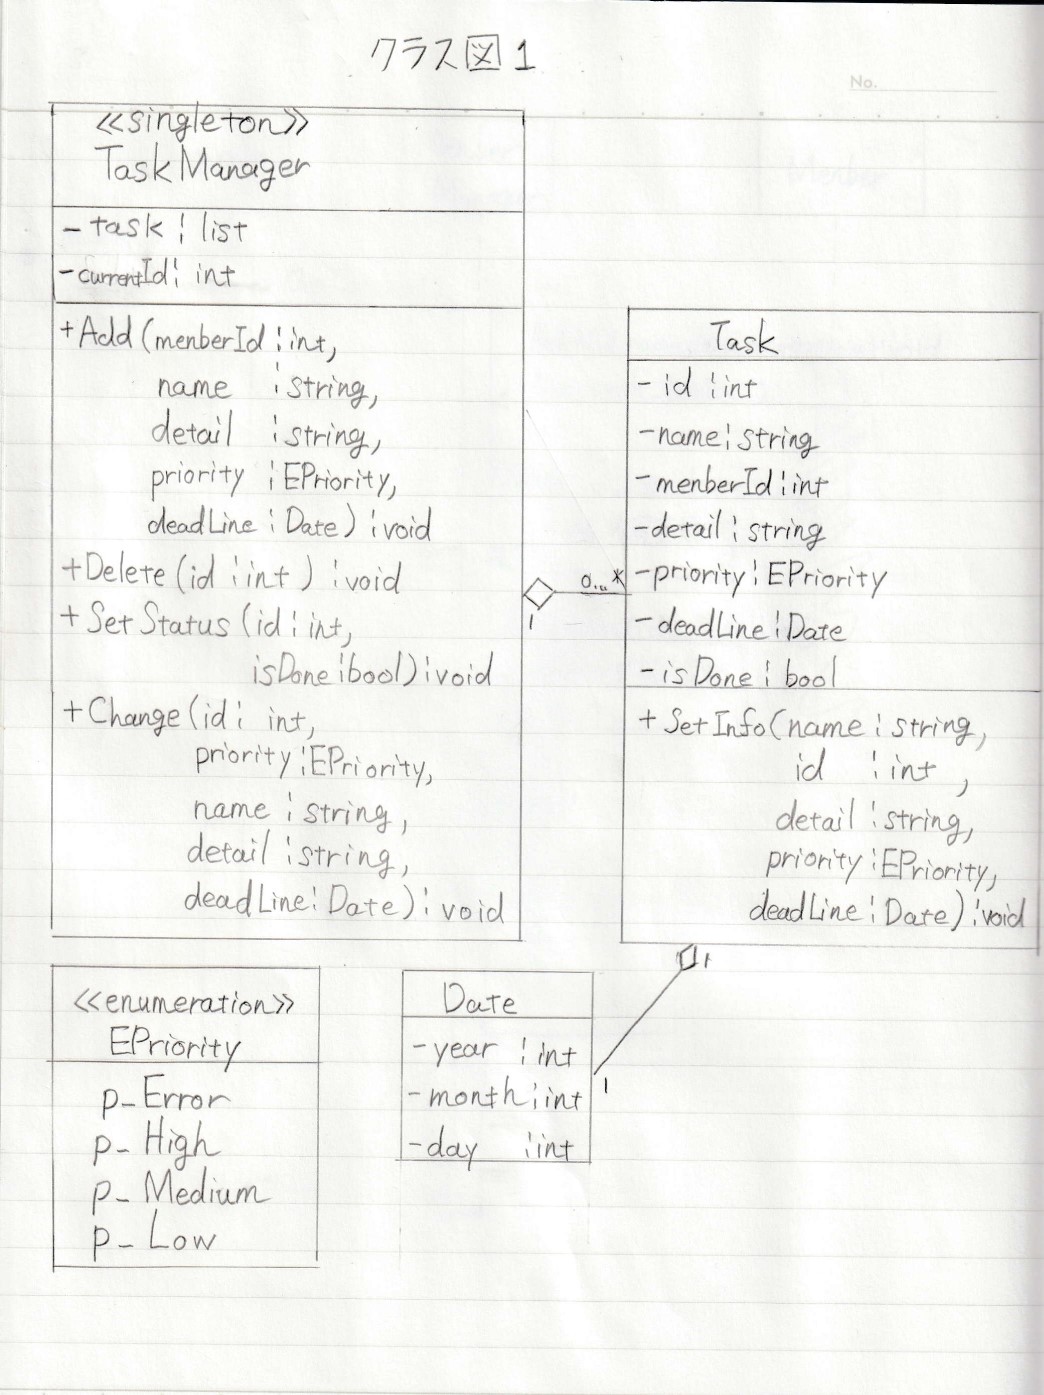 クラス図1
No.
≪singleton≫
TaskManager
- task : list
- currentId : int
+ Add (menberId : int,
name : string,
detail : string,
priority : EPriority,
deadLine : Date) : void
+ Delete (id : int) : void
+ SetStatus (id : int,
isDone : bool) : void
+ Change (id : int,
priority : EPriority,
name : string,
detail : string,
deadLine : Date) : void
1
0..*
Task
- id : int
- name : string
- menberId : int
- detail : string
- priority : EPriority
- deadLine : Date
- isDone : bool
+ SetInfo (name : string,
id : int,
detail : string,
priority : EPriority,
deadLine : Date) : void
1
1
≪enumeration≫
EPriority
p_Error
p_High
p_Medium
p_Low
Date
- year : int
- month : int
- day : int